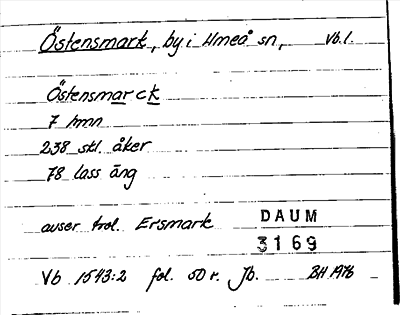 Östensmark, by i Umeå sn, Vb l.
Östensmarck
7 hmn
238 skl. åker
78 lass äng
avser trol. Ersmark
DAUM
3169
Vb 1543:2 fol. 50 r. Jb. BH 1976